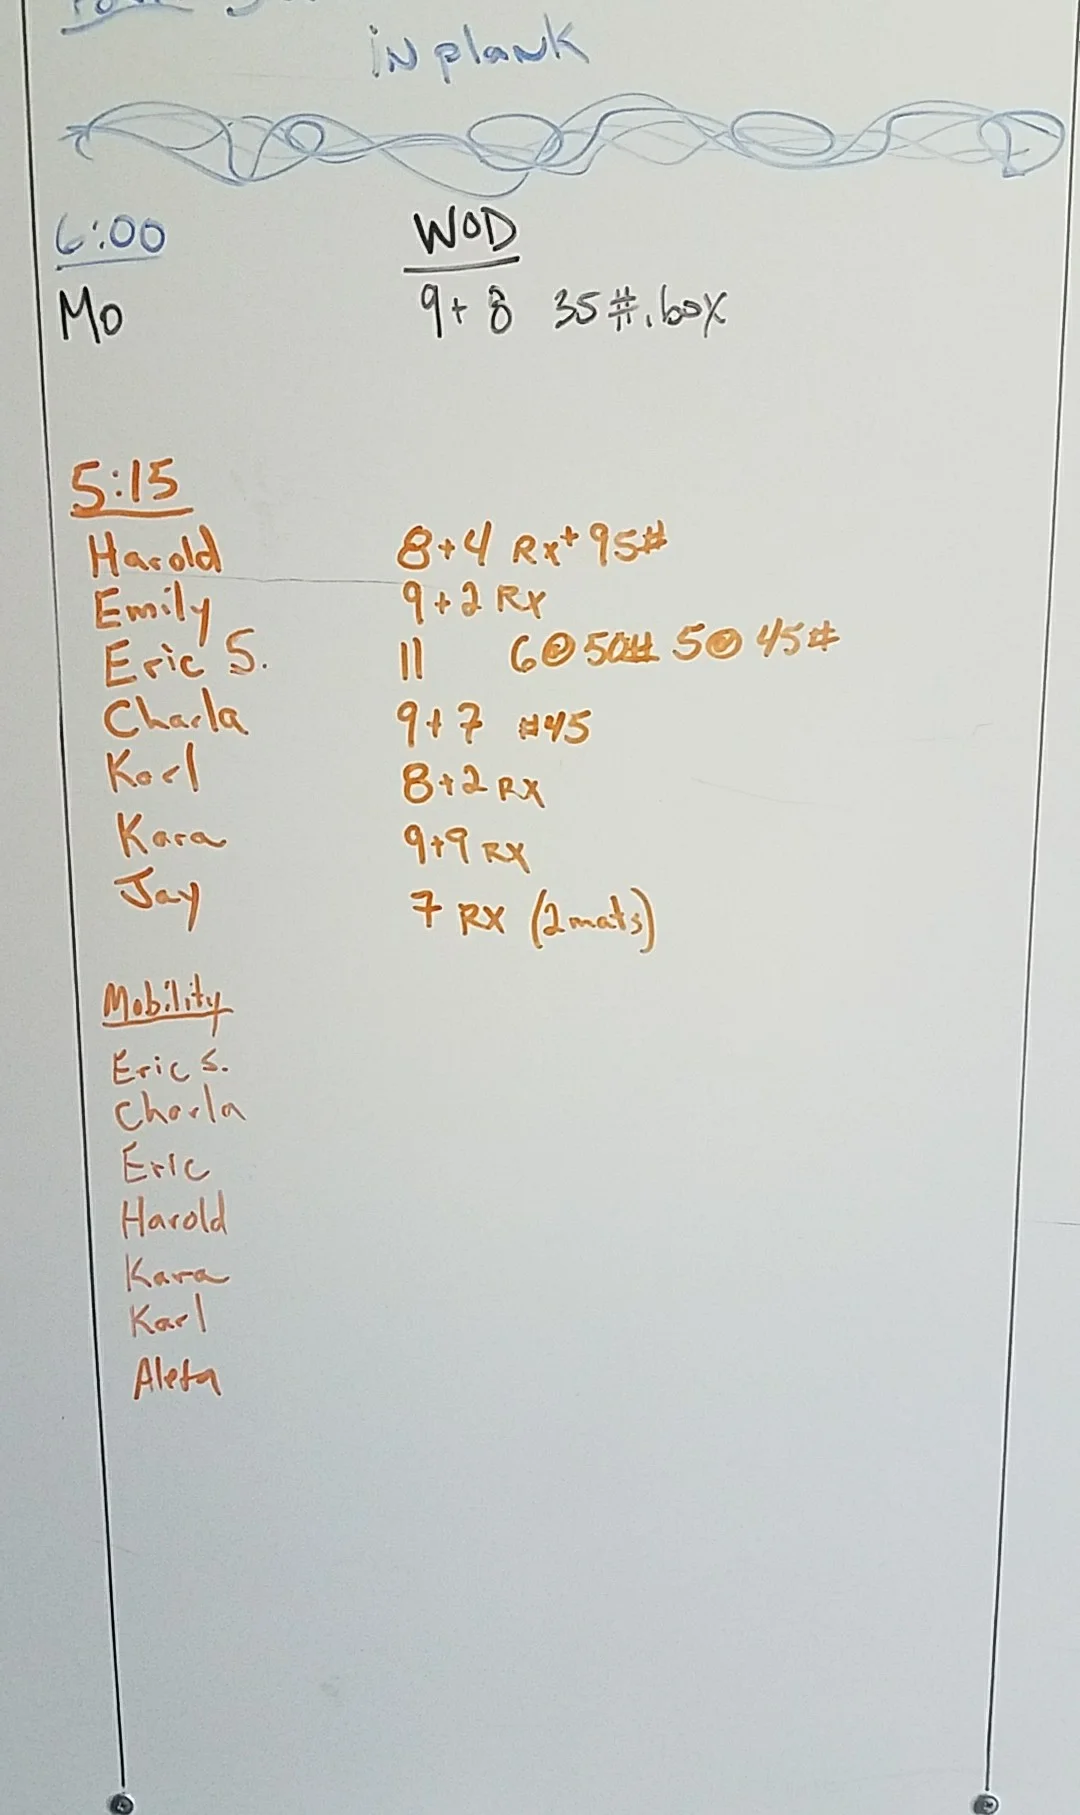 in plank
6:00 WOD
Mo 9+8 35#, box
5:15
Harold 8+4 Rx+ 95#
Emily 9+2 RX
Eric S. 11 6@50# 5@45#
Charla 9+7 #45
Karl 8+2 RX
Kara 9+9 RX
Jay 7 RX (2 mats)
Mobility
Eric S.
Charla
Eric
Harold
Kara
Karl
Aleta